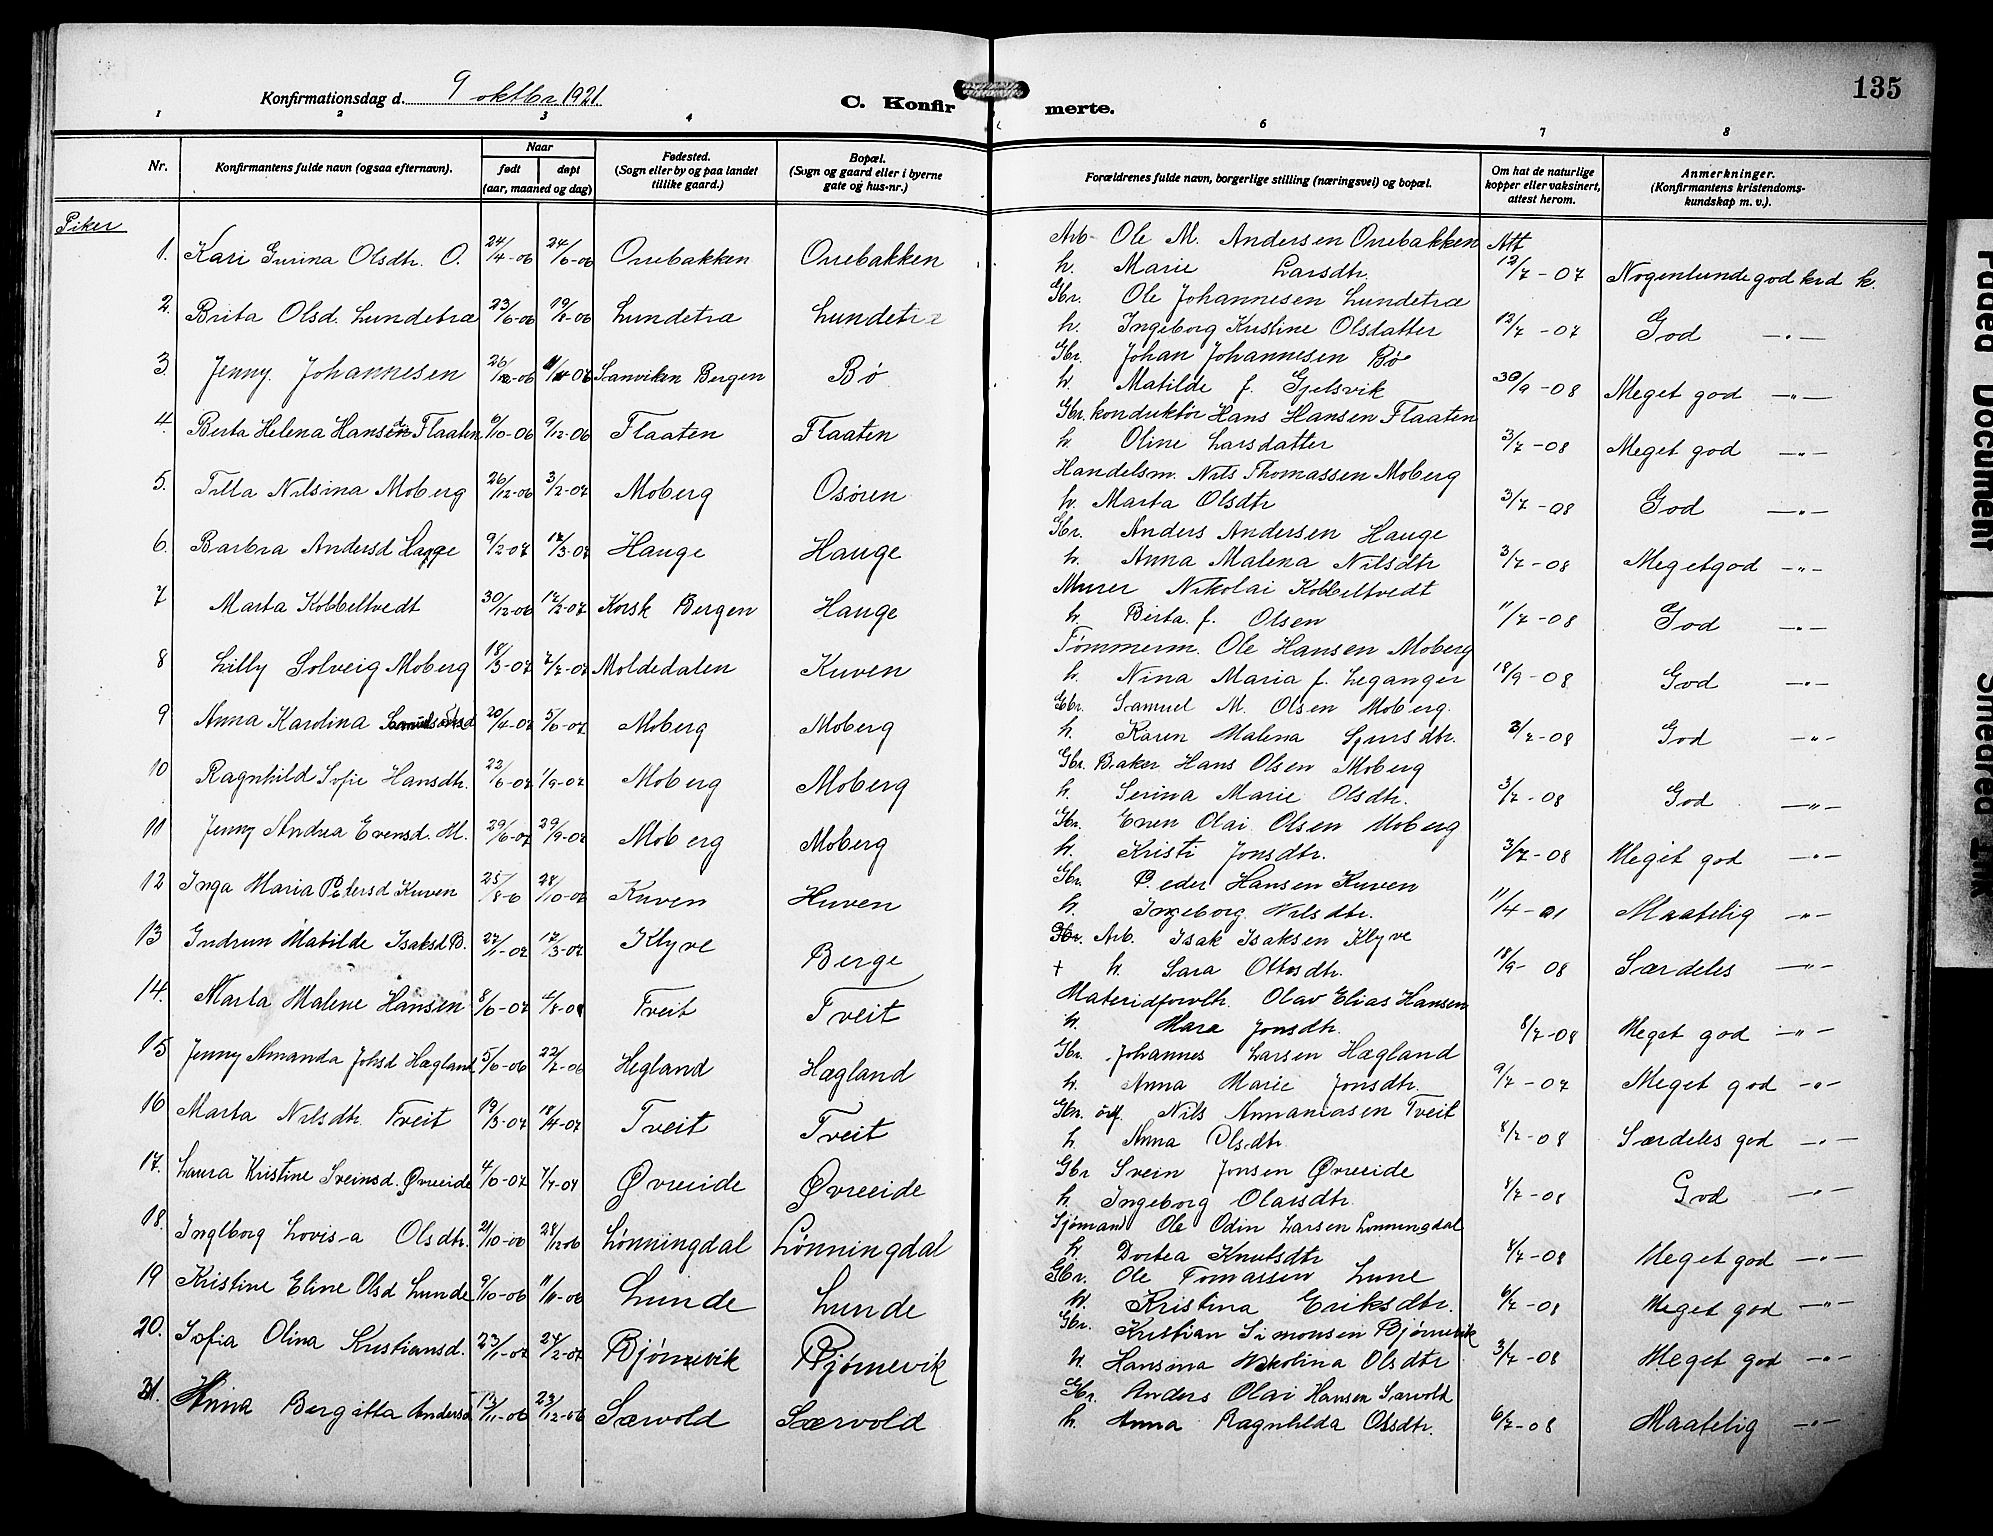 Konfirmationsdag d. 9 oktbr 1921.
C. Konfirmerte.
135
1 2 3 4 5 6 7 8
Nr.
Konfirmantens fulde navn (ogsaa efternavn).
Naar
født døpt
(aar, maaned og dag)
Fødested.
(Sogn eller by og paa landet
tillike gaard.)
Bopæl.
(Sogn og gaard eller i byerne
gate og hus-nr.)
Forældrenes fulde navn, borgerlige stilling (næringsvei) og bopæl.
Om hat de naturlige
kopper eller vaksinert,
attest herom.
Anmerkninger.
(Konfirmantens kristendoms-
kundskap m. v.).
Piker
1. Kari Gurina Olsdtr. O. 24/4-06 24/6-06 Orrebakken Orrebakken Arb- Ole M. Andersen Orrebakken Att
h. Marie Larsdtr. 12/7-07 Nogenlunde god krd k.
2. Brita Olsd. Lundetræ 23/6-06 19/8-06 Lundetræ Lundetræ Gbr. Ole Johannesen Lundetræ
h. Ingeborg Kristine Olsdatter 12/7-07 God -"-
3. Jenny Johannesen Sanviken Bergen Bø Gbr. Johan Johannesen Bø
h. Matilde f. Gjelsvik 30/9-08 Meget god -"-
4. Berta Helena Hansdtr Flaaten 6/10-06 9/12-06 Flaaten Flaaten Gbr. konduktør Hans Hansen Flaaten
h. Oline Larsdatter 3/7-08 Meget god -"-
5. Tilla Nilsina Moberg 26/12-06 3/2-07 Moberg Osøren Handelsm. Nils Thomassen Moberg
h. Marta Olsdtr 3/7-08 God -"-
6. Barbra Andersd Hauge 9/2-07 17/3-07 Hauge Hauge Gbr. Anders Andersen Hauge
h. Anna Malena Nilsdtr 3/7-08 Megetgod -"-
7 Marta Kobbeltvedt 30/12-06 17/2-07 Korsk Bergen Hauge Murer Nikolai Kobbeltvedt
h. Berta f. Olsen 11/7-08 God -"-
8 Lilly Solveig Moberg 18/3-07 7/7-07 Moldedalen Kuven Tømmerm. Ole Hansen Moberg
h. Nina Maria f. Leganger 18/9-08 God -"-
9 Anna Karolina 20/4-07 5/6-07 Moberg Moberg Gbr. Samuel M. Olsen Moberg.
h. Karen Malena Sjursdtr. 3/7-08 God -"-
10 Ragnhild Sofie Hansdtr. 23/6-07 1/9-07 Moberg Moberg Gbr. Baker Hans Olsen Moberg
h. Serina Marie Olsdtr. 3/7-08 God -"-
11 Jenny Andrea Evensd. M. 29/6-07 29/9-07 Moberg Moberg Gbr. Even Olai Olsen Moberg
h. Kristi Jonsdtr. 3/7-08 Meget god -"-
12 Inga Maria Petersd Kuven 25/8-0 28/10-06 Kuven Kuven Gbr. Peder Hansen Kuven
h. Ingeborg Nilsdtr. 11/4-01 Maatelig -"-
13 Gudrun Matilde Isaksd B. 27/1-07 17/3-07 Klyve Berge Gbr. Arb. Isak Isaksen Klyve
+ h. Sara Ottosdtr. 18/9-08 Særdeles -"-
14. Marta Malene Hansen 8/6-07 Tveit Tveit Materialforvlt. Olav Elias Hansen
h. Jonsdtr. 8/7-08 Meget god -"-
15 Jenny Amanda Johsd Hægland 5/6-06 22/7-06 Hegland Hægland Gbr. Johannes Larsen Hægland
h. Anna Marie Jonsdtr. 9/7-07 Meget god -"-
16 Marta Nilsdtr. Tveit 19/3-07 18/4-07 Tveit Tveit Gbr. Nils Annaniasen Tveit
h. Anna Olsdtr. 8/7-08 Særdeles god -"-
17. Laura Kristine Sveinsd. Øvreeide 4/6-07 7/7-07 Øvreeide Øvreeide Gbr Svein Jonsen Øvreeide
h. Ingeborg Olavsdtr. 8/7-08 God -"-
18. Ingeborg Lovisa Olsdtr. 21/10-06 28/12-06 Lønningdal Lønningdal Sjømand Ole Odin Larsen Lønningdal
h Dortea Knutsdtr 8/7-08 Meget god -"-
19 Kristine Eline Olsd Lunde 9/10-06 11/11-06 Lunde Lunde Gbr. Ole Tomassen Lune
h. Kristina Eriksdtr. 6/7-08 Meget god -"-
20. Sofia Olina Kristiansd. 23/1-07 24/2-07 Bjørnevik Bjørnevik Gbr. Kristian Simonsen Bjørnevik
h. Hansina Nikolina Olsdtr 3/7-08 Meget god -"-
21. Anna Bergitta Andersd 13/11-06 23/12-06 Særvold Særvold Gbr. Anders Olai Hansen Særvold
h. Anna Ragnhilda Olsdtr. 6/7-08 Maatelig -"-
Faded Document
Smeared Ink